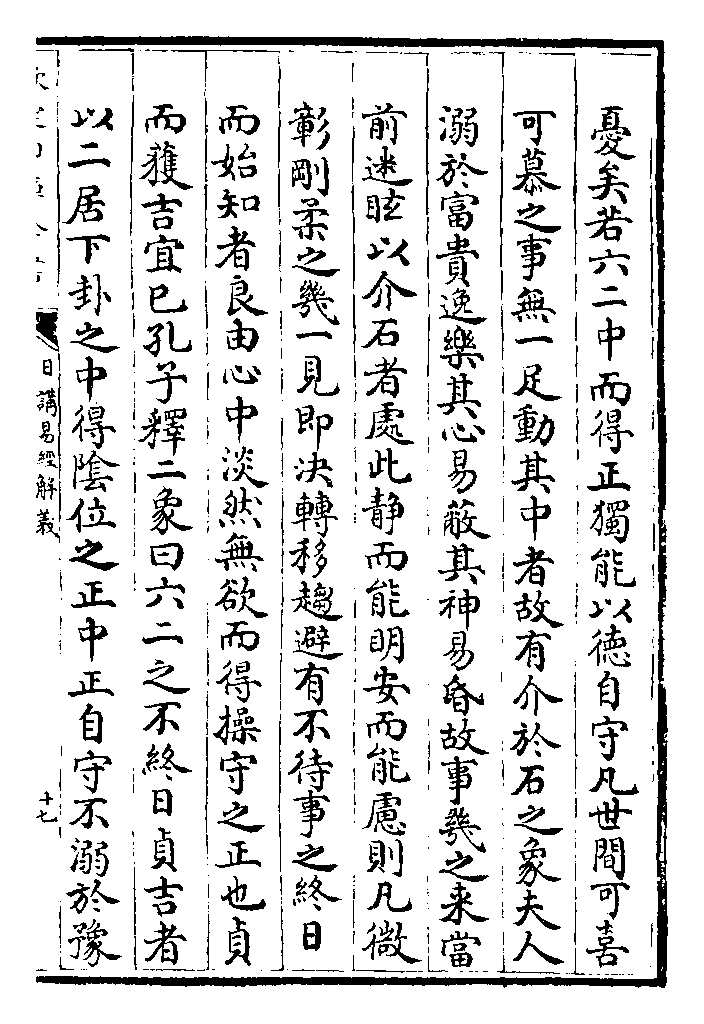 憂矣若六二中而得正獨能以德自守凡世間可喜
可慕之事無一足動其中者故有介於石之象夫人
溺於富貴逸樂其心易蔽其神易昏故事幾之来當
前迷眩以介石者處此静而能明安而能慮則凡微
彰剛柔之幾一見即决轉移趨避有不待事之終日
而始知者良由心中淡然無欲而得操守之正也貞
而獲吉宜已孔子釋二象曰六二之不終日貞吉者
以二居下卦之中得陰位之正中正自守不溺於豫
日講易經解義
十七